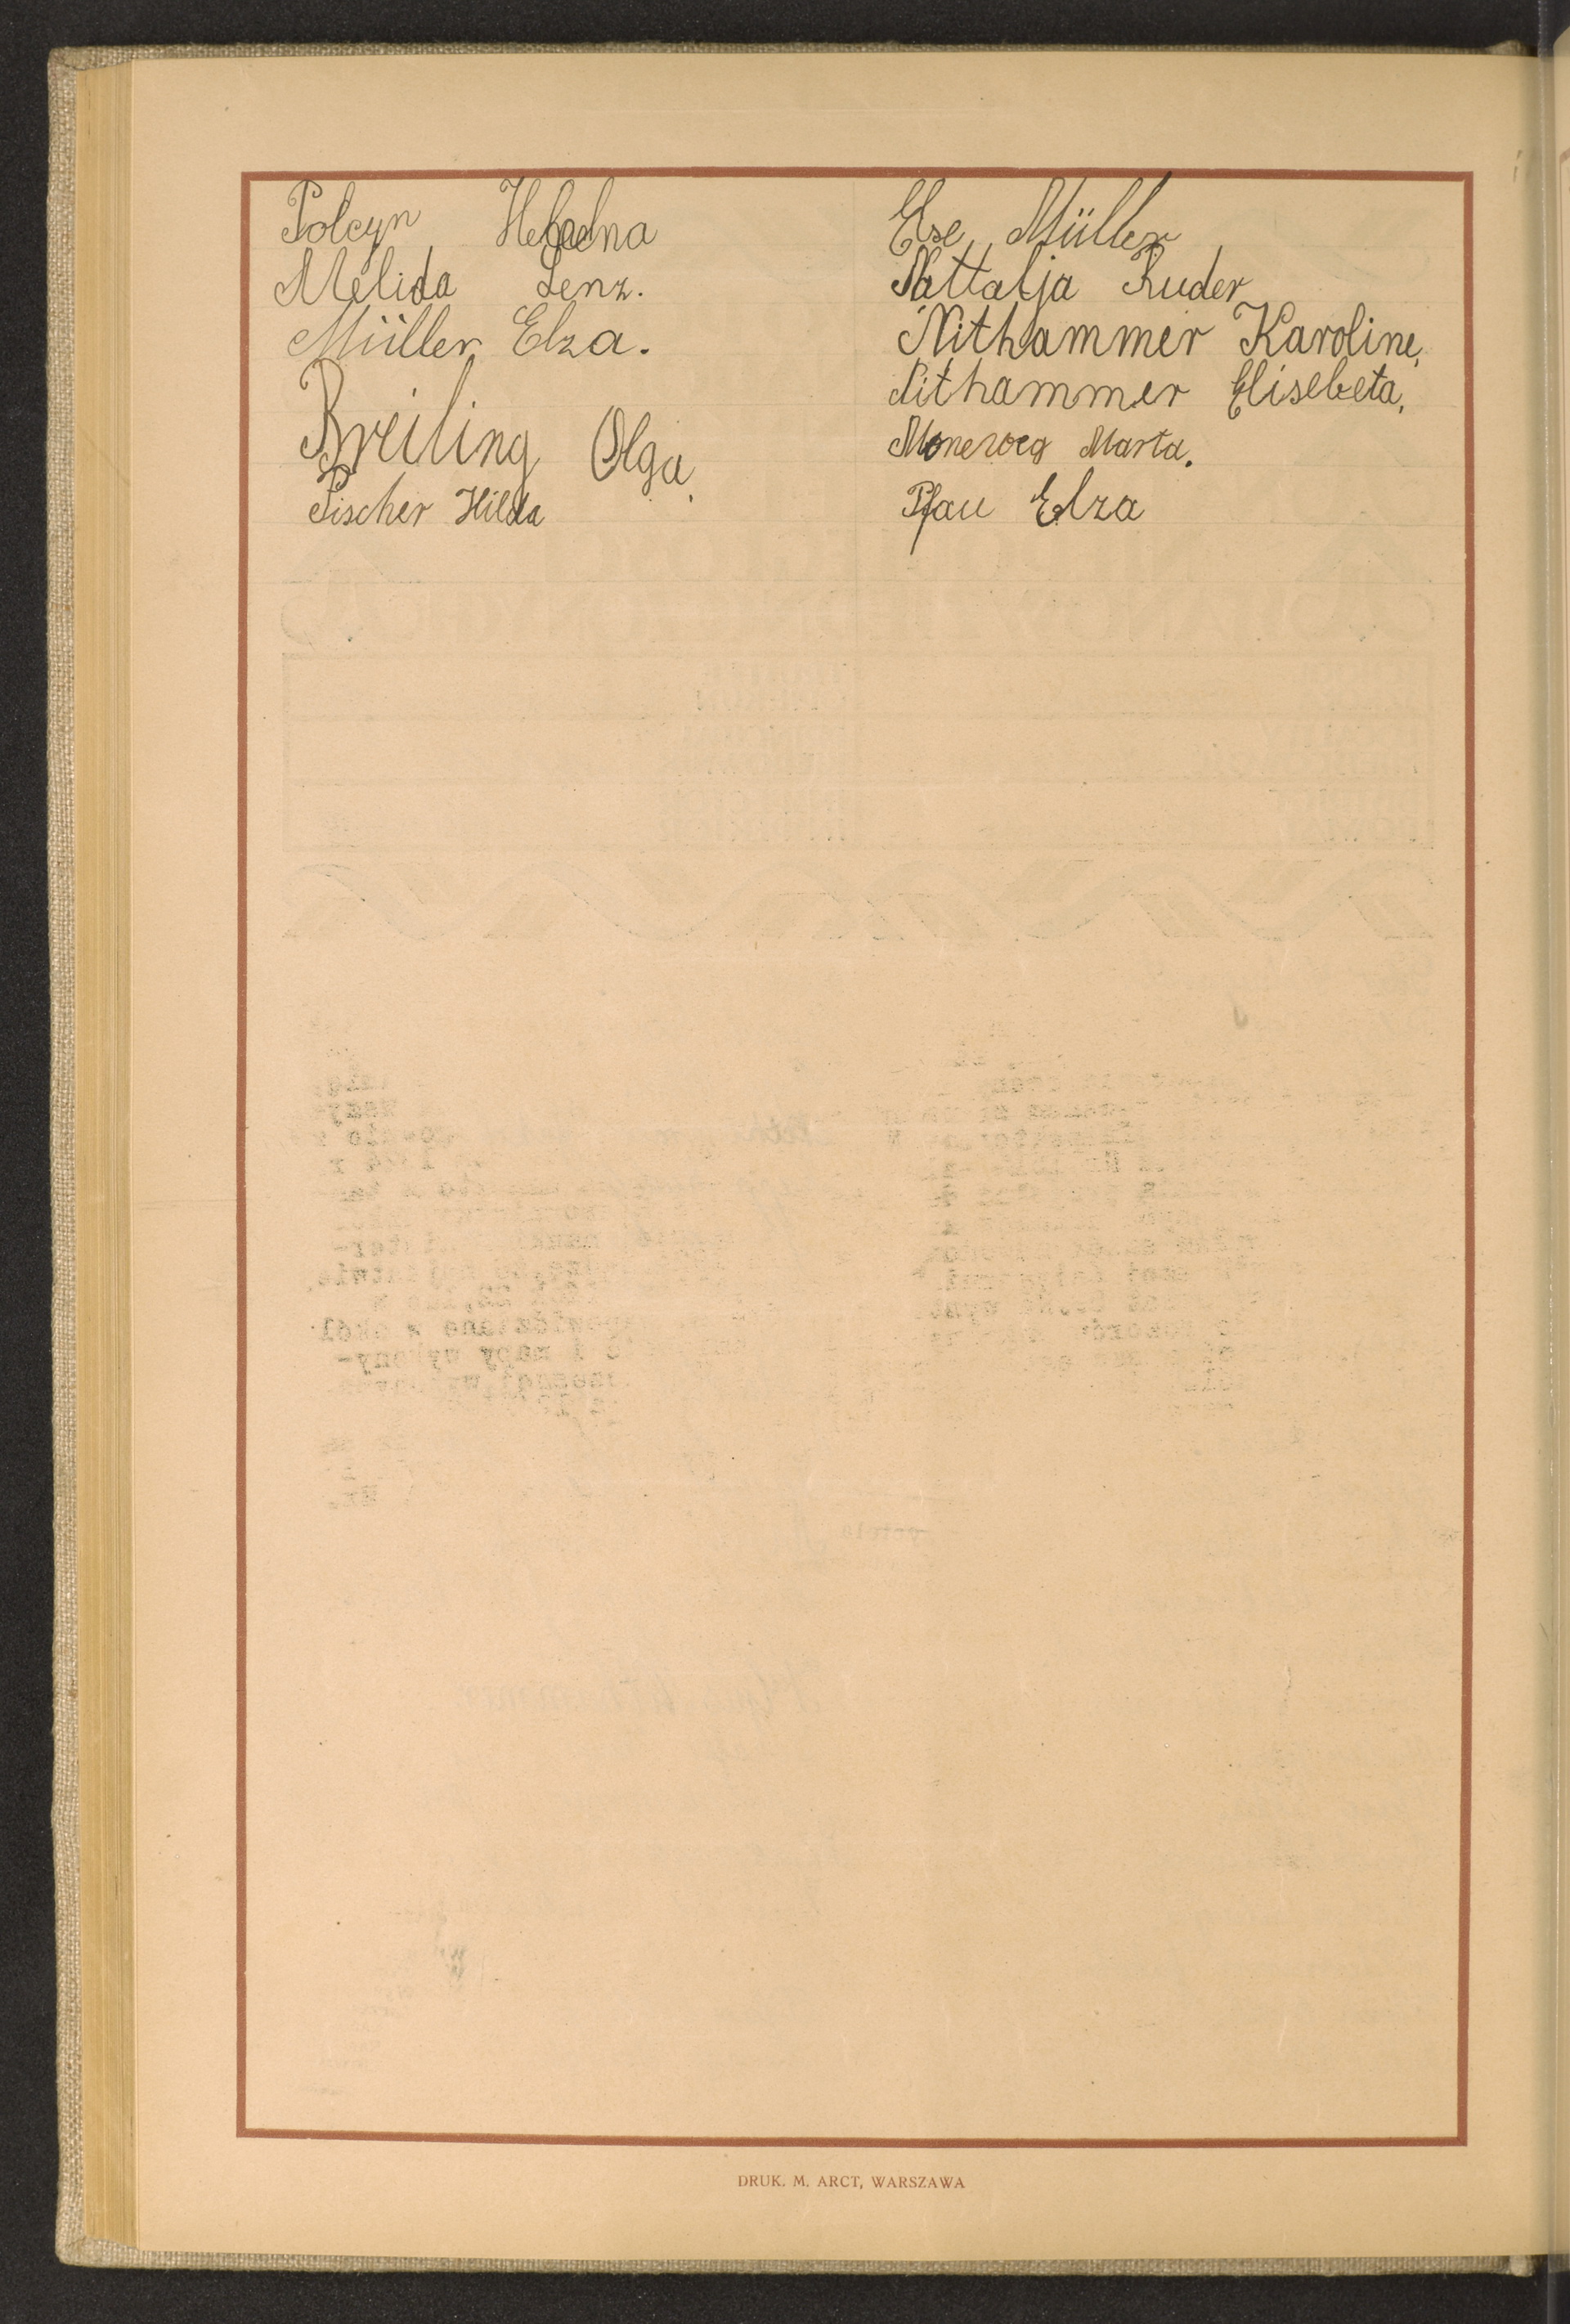 Polcyn Helena
Melida Lenz.
Müller Elza.
Breiling Olga.
Fischer Hilda
Else Müller
Nattalja Ruder
Nithammer Karoline,
Nithammer Elisebeta,
Marta.
Pfau Elza
DRUK. M. ARCT, WARSZAWA